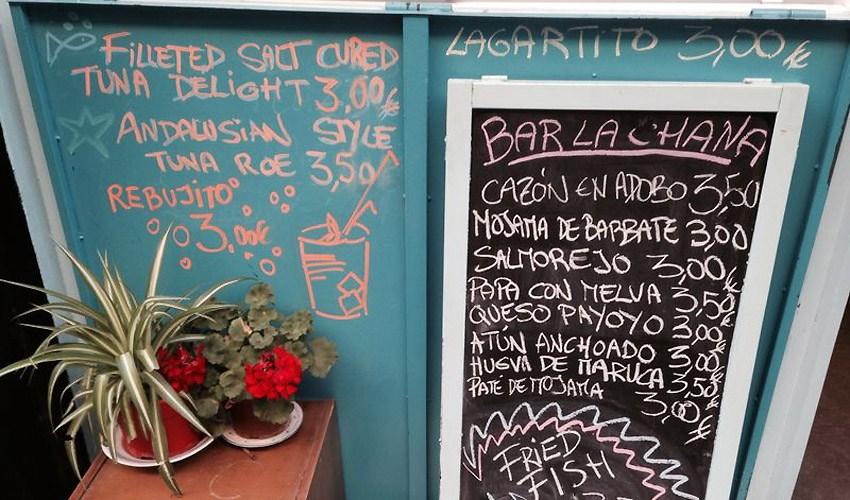 FILLETED SALT CURED
TUNA DELIGHT 3,00€
ANDALUSIAN STYLE
TUNA ROE 3,50
REBUJITO
3,00€
LAGARTITO 3,00€
BAR LA CHANA
CAZÓN EN ADOBO 3,50
MOJAMA DE BARBATE 3,00
SALMOREJO 3,00€
PAPA CON MELVA 3,50
QUESO PAYOYO 3,00
ATÚN ANCHOADO 3,00
HUEVA DE MARUCA 3,50
PATE DE MOJAMA 3,00€
FRIED
FISH